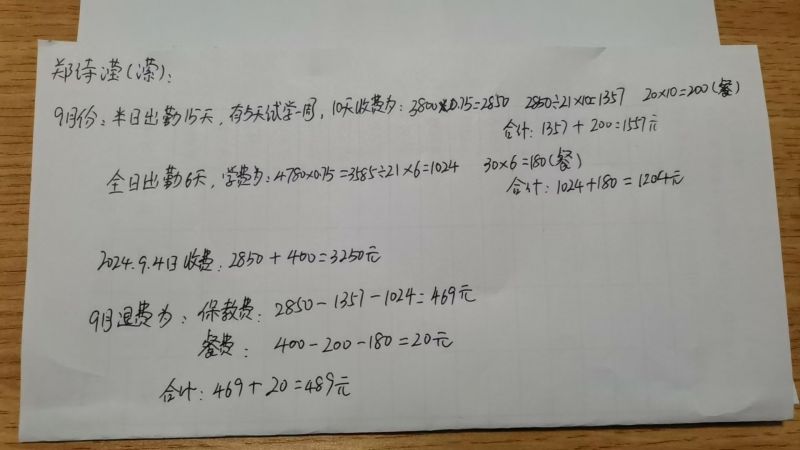 郑诗滢(潆):
9月份: 半日出勤15天, 有5天试学一周, 10天收费为: 3800×0.75=2850 2850÷21×10=1357 20×10=200(餐)
合计: 1357+200=1557元
全日出勤6天, 学费为: 4780×0.75=3585÷21×6=1024 30×6=180(餐)
合计: 1024+180=1204元
2024.9.4日收费: 2850+400=3250元
9月退费为: 保教费: 2850-1357-1024=469元
餐费: 400-200-180=20元
合计: 469+20=489元